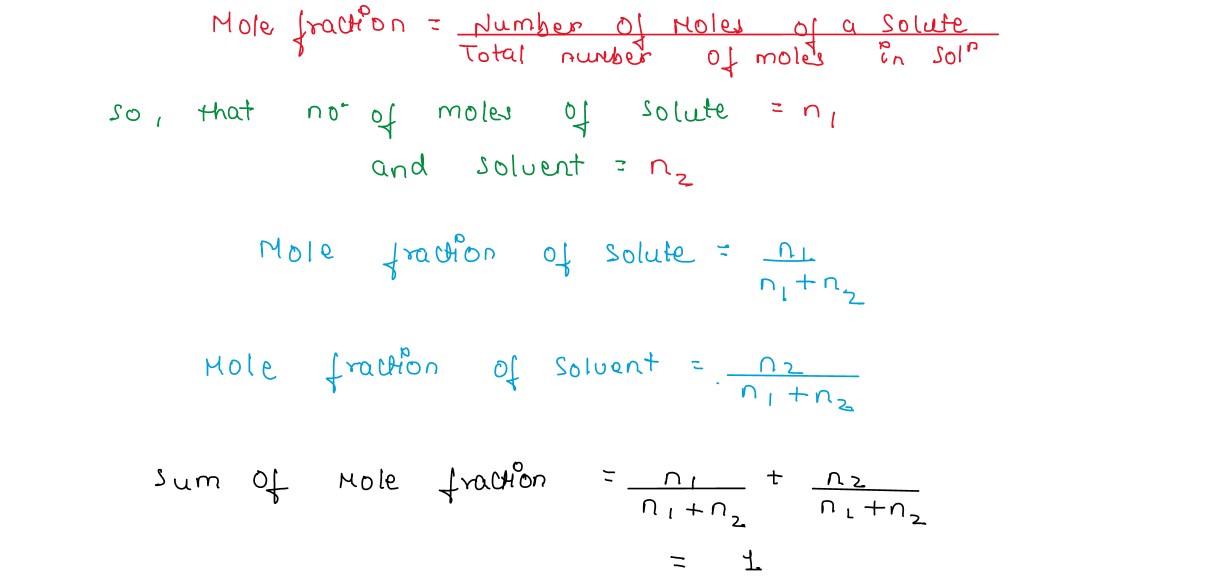 Mole fraction = Number of Moles of a Solute
Total number of moles in solⁿ
so, that no· of moles of solute = n₁
and solvent = n₂
Mole fraction of solute = n₁
n₁ + n₂
Mole fraction of Solvent = n₂
n₁ + n₂
Sum of Mole fraction = n₁ + n₂
n₁ + n₂ n₁ + n₂
= 1